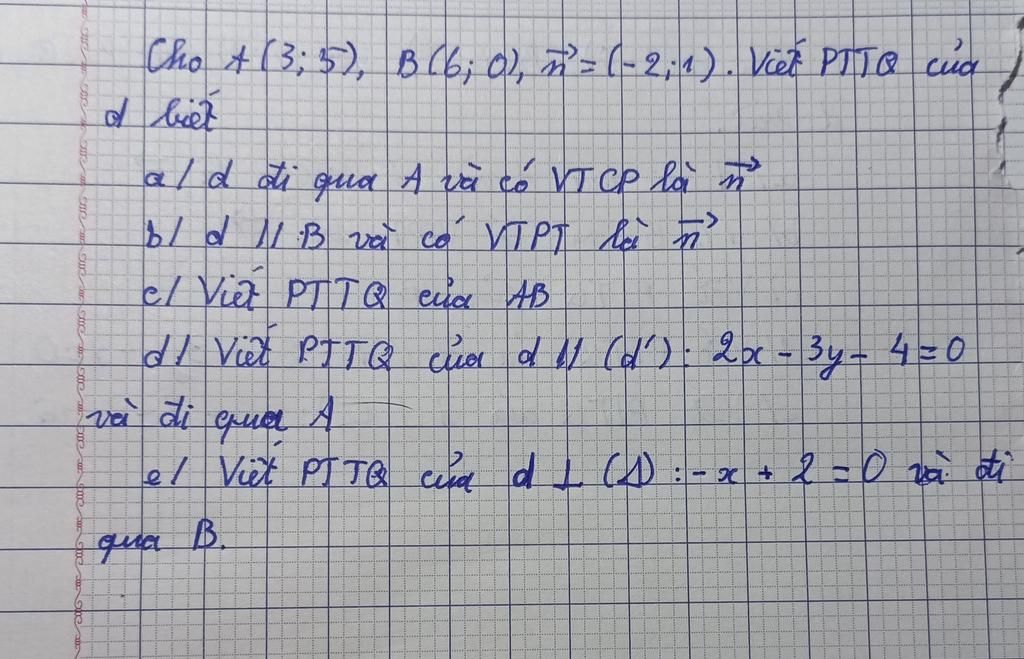 Cho A(3;5), B(6;0), n⃗=(-2;1). Viết PTTQ của
d biết
a/ d đi qua A và có VTCP là n⃗
b/ d // B và có VTPT là n⃗
c/ Viết PTTQ của AB
d/ Viết PTTQ của d // (d'): 2x - 3y - 4 = 0
và đi qua A
e/ Viết PTTQ của d ⊥ (Δ): -x + 2 = 0 và đi
qua B.